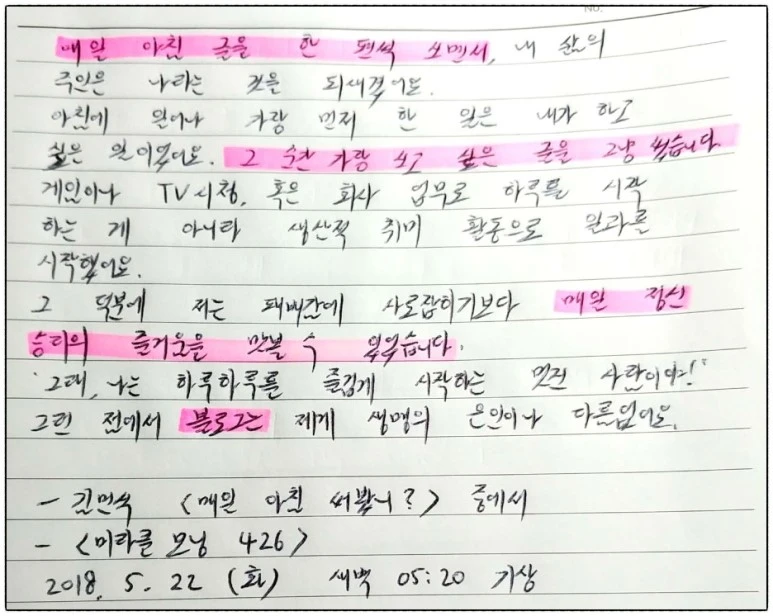 NO.
매일 아침 글을 한 편씩 쓰면서, 내 삶의
주인은 나라는 것을 되새겼어요.
아침에 일어나 가장 먼저 한 일은 내가 하고
싶은 일이었어요. 그 순간 가장 쓰고 싶은 글을 그냥 썼습니다
게임이나 TV시청, 혹은 회사 업무로 하루를 시작
하는 게 아니라 생산적 취미 활동으로 일과를
시작했어요.
그 덕분에 저는 패배감에 사로잡히기보다 매일 정신
승리의 즐거움을 맛볼 수 있었습니다.
'그래, 나는 하루하루를 즐겁게 시작하는 멋진 사람이야!'
그런 점에서 블로그는 제게 생명의 은인이나 다름없어요.
- 김민식 <매일 아침 써봤니?> 중에서
- <미라클 모닝 426>
2018. 5. 22 (화) 새벽 05:20 기상